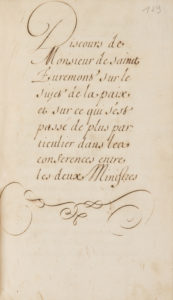 123
Discours de
Monsieur de saint
Evremont sur le
sujet de la paix
et sur ce qui s'est
passé de plus par
ticulier dans les
conferences entre
les deux Ministres